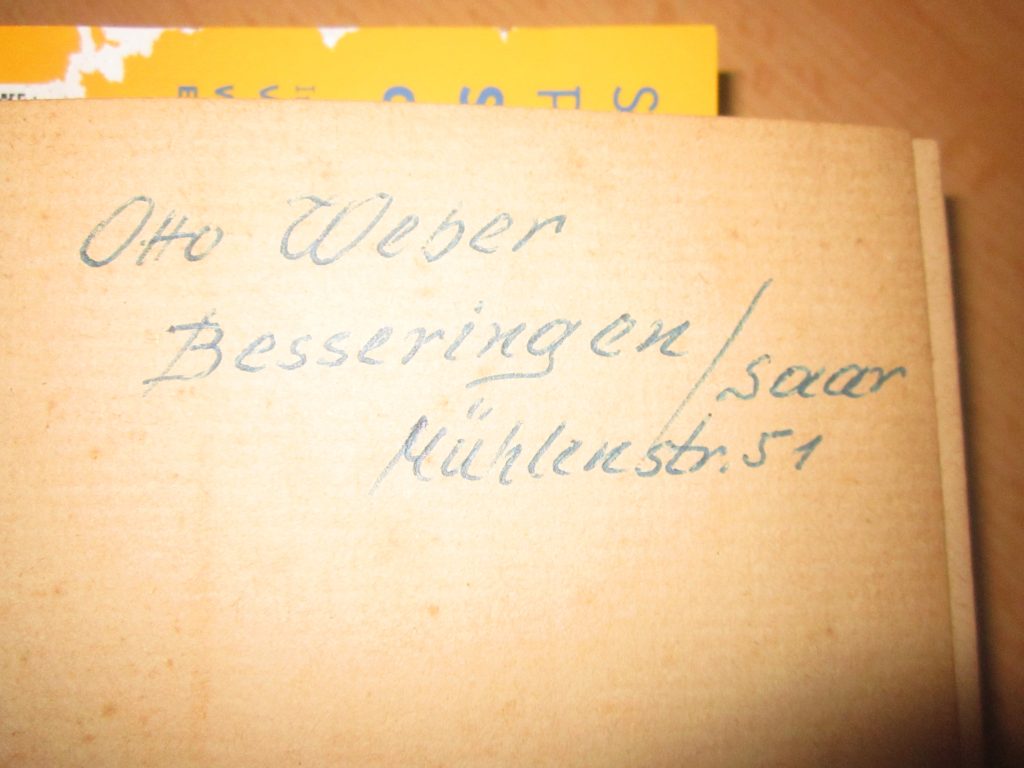 Otto Weber
Besseringen/Saar
Mühlenstr. 51